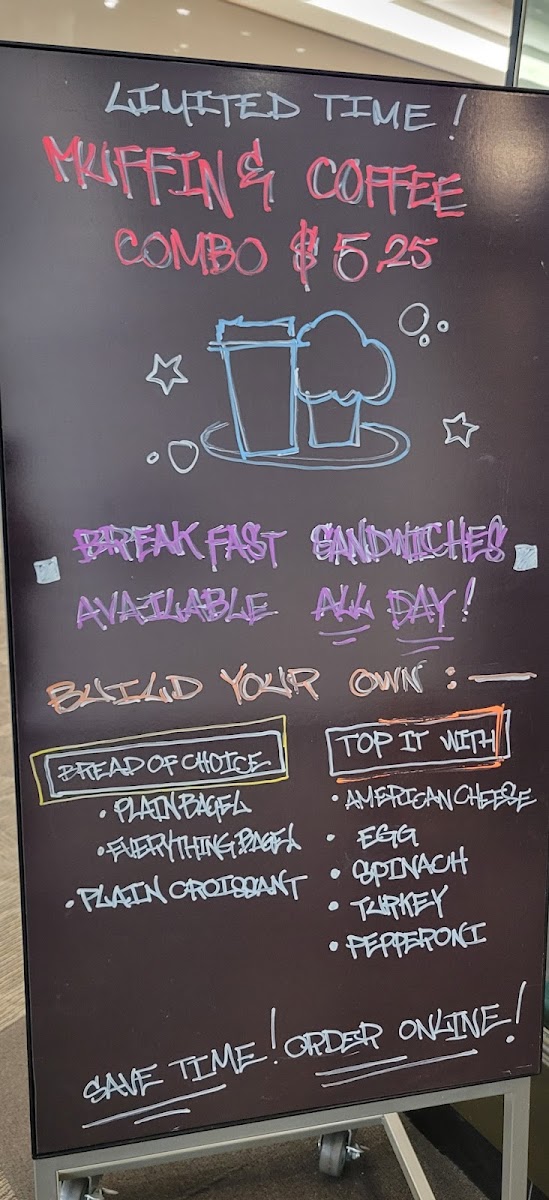 LIMITED TIME!
MUFFIN & COFFEE
COMBO $5.25
BREAKFAST SANDWICHES
AVAILABLE ALL DAY!
BUILD YOUR OWN : —
BREAD OF CHOICE
• PLAIN BAGEL
• EVERYTHING BAGEL
• PLAIN CROISSANT
TOP IT WITH
• AMERICAN CHEESE
• EGG
• SPINACH
• TURKEY
• PEPPERONI
SAVE TIME! ORDER ONLINE!